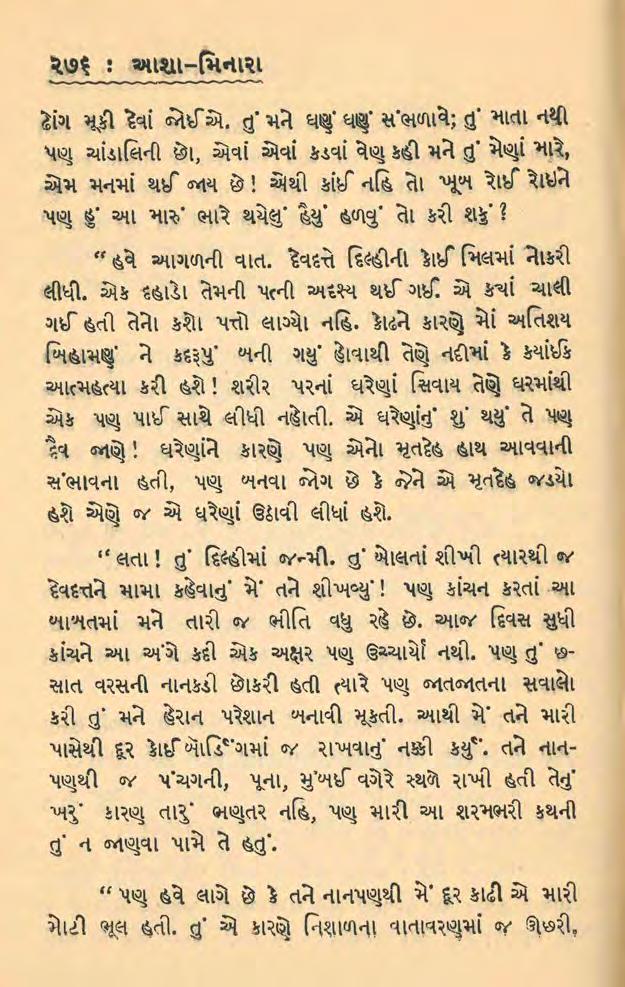 ૨૭૬ : આશા-મિનારા
ઢોંગ મૂકી દેવાં જોઈએ. તું મને ઘણું ઘણું સંભળાવે; તું માતા નથી
પણ ચાંડાલિની છો, એવાં એવાં કડવાં વેણ કહી મને તું મેણાં મારે,
એમ મનમાં થઈ જાય છે ! એથી કાંઈ નહિ તો ખૂબ રોઈ રોઇને
પણ હું આ મારું ભારે થયેલું હૈયું હળવું તો કરી શકું ?
“ હવે આગળની વાત. દેવદત્તે દિલ્હીની કોઈ મિલમાં નોકરી
લીધી. એક દહાડો તેમની પત્ની અદશ્ય થઈ ગઈ. એ કયાં ચાલી
ગઈ હતી તેનો કશો પત્તો લાગ્યો નહિ. કોઢને કારણે મોં અતિશય
બિહામણું ને કદરૂપું બની ગયું હોવાથી તેણે નદીમાં કે કયાંઈક
આત્મહત્યા કરી હશે ! શરીર પરનાં ઘરેણાં સિવાય તેણે ઘરમાંથી
એક પણ પાઈ સાથે લીધી નહોતી. એ ઘરેણાંનું શું થયું તે પણ
દૈવ જાણે ! ઘરેણાંને કારણે પણ એનો મૃતદેહ હાથ આવવાની
સંભાવના હતી, પણ બનવા જોગ છે કે જેને એ મૃતદેહ જડયો
હશે એણે જ એ ઘરેણાં ઉઠાવી લીધાં હશે.
“ લતા ! તું દિલ્હીમાં જન્મી. તું બોલતાં શીખી ત્યારથી જ
દેવદત્તને મામા કહેવાનું મેં તને શીખવ્યું ! પણ કાંચન કરતાં આ
બાબતમાં મને તારી જ ભીતિ વધુ રહે છે. આજ દિવસ સુધી
કાંચને આ અંગે કદી એક અક્ષર પણ ઉચ્ચાર્યો નથી. પણ તું છ-
સાત વરસની નાનકડી છોકરી હતી ત્યારે પણ જાતજાતના સવાલો
કરી તું મને હેરાન પરેશાન બનાવી મૂકતી. આથી મેં તને મારી
પાસેથી દૂર કોઈ બૉર્ડિંગમાં જ રાખવાનું નક્કી કર્યું. તને નાન-
પણથી જ પંચગની, પૂના, મુંબઈ વગેરે સ્થળે રાખી હતી તેનું
ખરું કારણ તારું ભણતર નહિ, પણ મારી આ શરમભરી કથની
તું ન જાણવા પામે તે હતું.
“ પણ હવે લાગે છે કે તને નાનપણથી મેં દૂર કાઢી એ મારી
મોટી ભૂલ હતી. તું એ કારણે નિશાળના વાતાવરણમાં જ ઊછરી,